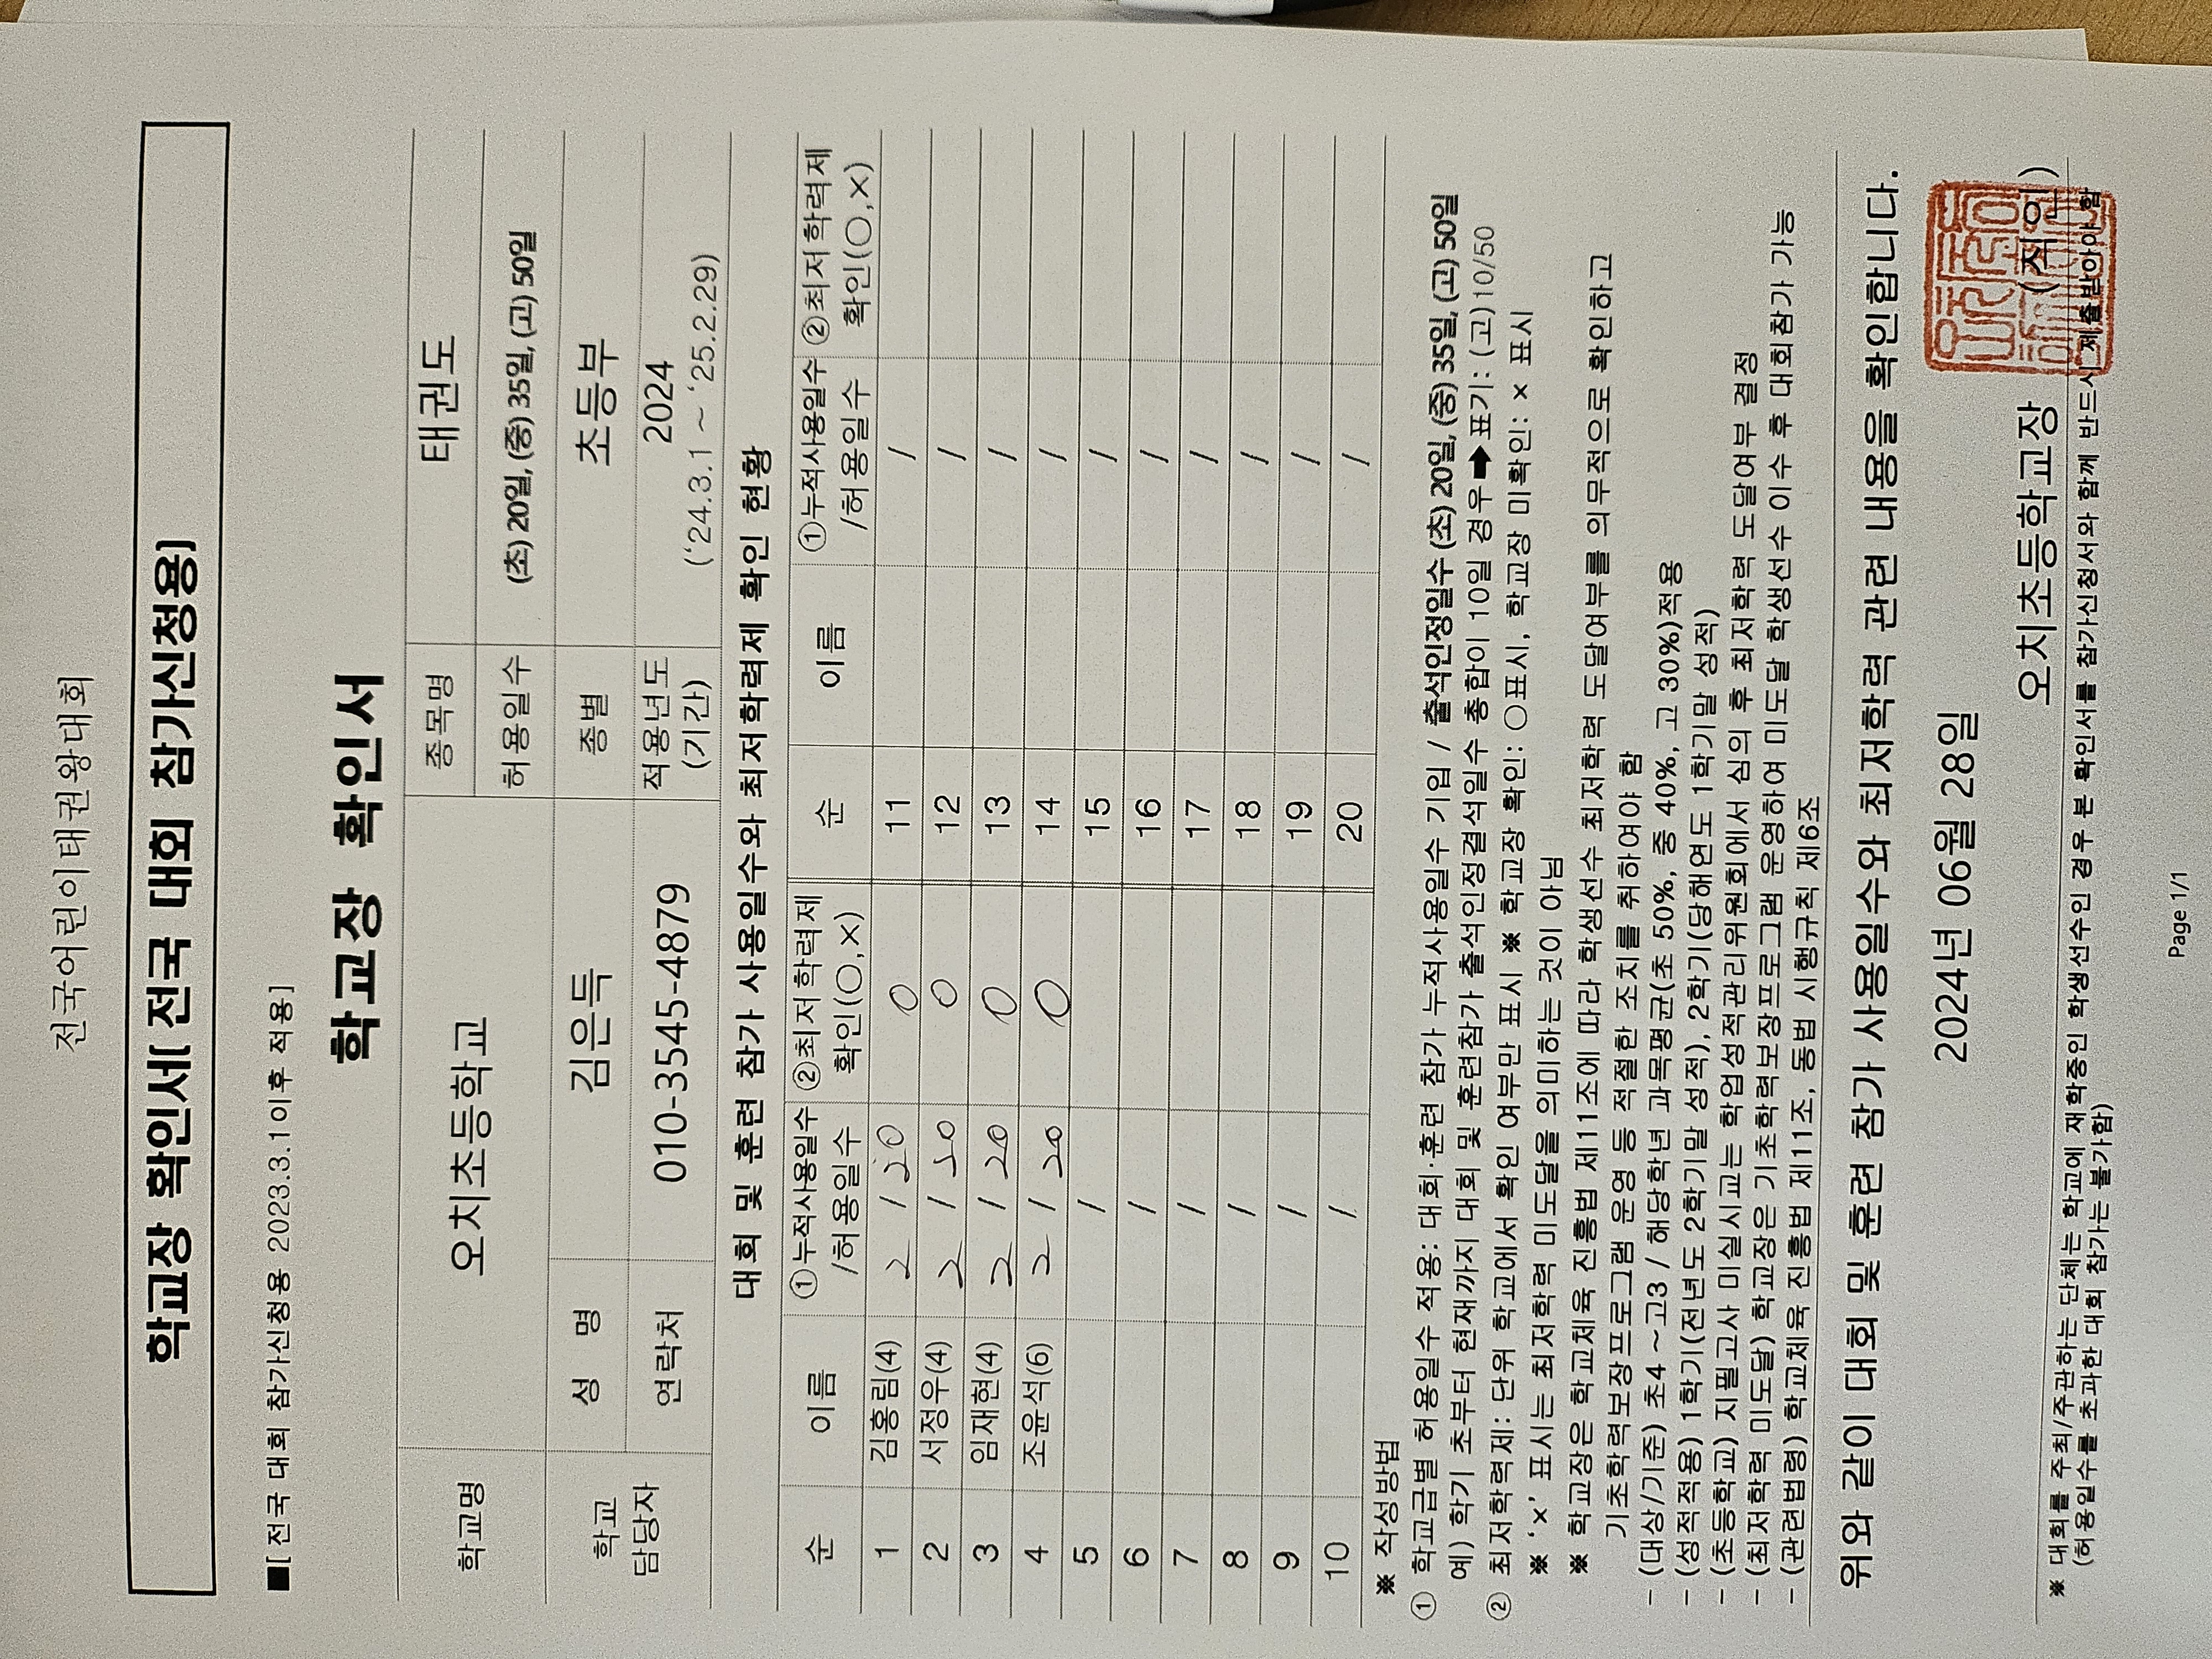 전국어린이태권왕대회
학교장 확인서[전국 대회 참가신청용]
■[전국 대회 참가신청용 2023.3.1이후 적용]
학교장 확인서
학교명 오치초등학교 종목명 태권도
허용일수 (초) 20일, (중) 35일, (고) 50일
학교 담당자 성 명 김은득 종별 초등부
연락처 010-3545-4879 적용년도 (기간) 2024 (‘24.3.1 ~ ‘25.2.29)
대회 및 훈련 참가 사용일수와 최저학력제 확인 현황
순 이름 ①누적사용일수 /허용일수 ②최저학력제 확인(○,×) 순 이름 ①누적사용일수 /허용일수 ②최저학력제 확인(○,×)
1 김홍림(4) 2 / 20 0 11 /
2 서정우(4) 2 / 20 0 12 /
3 임재현(4) 2 / 20 0 13 /
4 조윤석(6) 2 / 20 0 14 /
5 / 15 /
6 / 16 /
7 / 17 /
8 / 18 /
9 / 19 /
10 / 20 /
※ 작성방법
① 학교급별 허용일수 적용: 대회·훈련 참가 누적사용일수 기입 / 출석인정일수 (초) 20일, (중) 35일, (고) 50일
예) 학기 초부터 현재까지 대회 및 훈련참가 출석인정결석일수 총합이 10일 경우➡표기: (고)10/50
② 최저학력제: 단위 학교에서 확인 여부만 표시 ※ 학교장 확인: ○표시, 학교장 미확인: × 표시
※ ‘×’ 표시는 최저학력 미도달을 의미하는 것이 아님
※ 학교장은 학교체육 진흥법 제11조에 따라 학생선수 최저학력 도달여부를 의무적으로 확인하고
기초학력보장프로그램 운영 등 적절한 조치를 취하여야 함
- (대상/기준) 초4 ~고3 / 해당학년 과목평균(초 50%, 중 40%, 고 30%)적용
- (성적적용) 1학기(전년도 2학기말 성적), 2학기(당해연도 1학기말 성적)
- (초등학교) 지필고사 미실시교는 학업성적관리위원회에서 심의 후 최저학력 도달여부 결정
- (최저학력 미도달) 학교장은 기초학력보장프로그램 운영하여 미도달 학생선수 이수 후 대회참가 가능
- (관련법령) 학교체육 진흥법 제11조, 동법 시행규칙 제6조
위와 같이 대회 및 훈련 참가 사용일수와 최저학력 관련 내용을 확인합니다.
2024년 06월 28일
오치초등학교장 (직인)
※ 대회를 주최/주관하는 단체는 학교에 재학중인 학생선수인 경우 본 확인서를 참가신청서와 함께 반드시 제출받아야 함
(허용일수를 초과한 대회 참가는 불가함)
Page 1/1